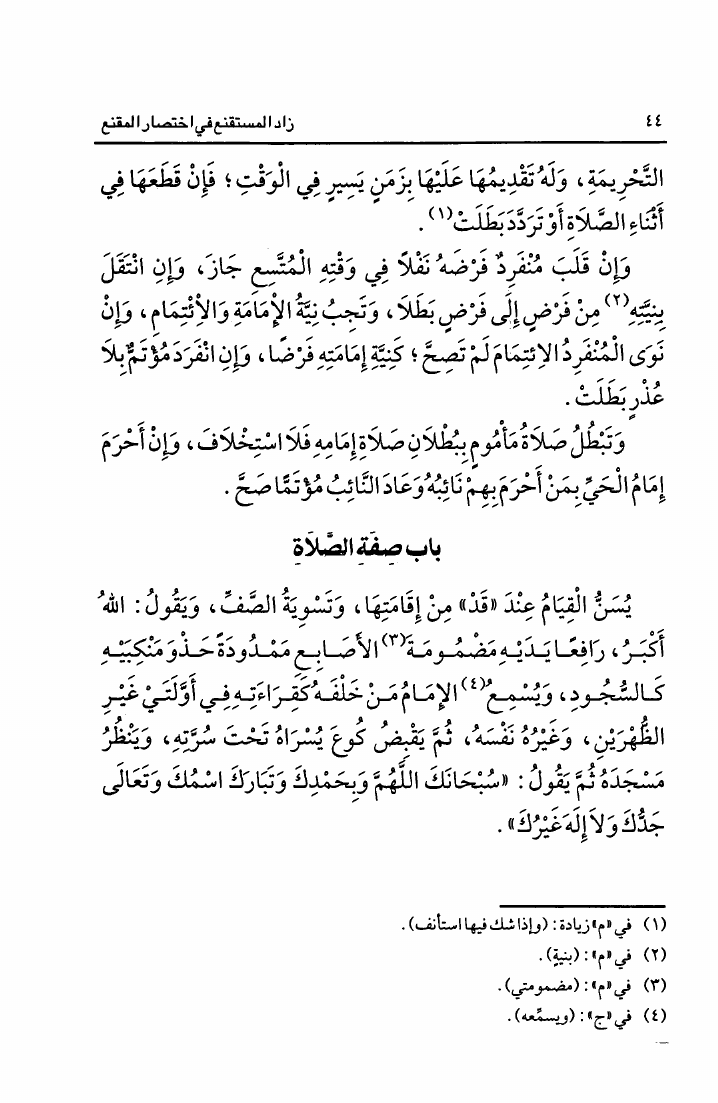 ٤٤ زاد المستقنع في اختصار المقنع
التَّحْرِيمَةِ، وَلَهُ تَقْدِيمُهَا عَلَيْهَا بِزَمَنٍ يَسِيرٍ فِي الْوَقْتِ؛ فَإِنْ قَطَعَهَا فِي
أَثْنَاءِ الصَّلَاةِ أَوْ تَرَدَّدَ بَطَلَتْ(١).
وَإِنْ قَلَبَ مُنْفَرِدٌ فَرْضَهُ نَفْلاً فِي وَقْتِهِ الْمُتَّسِعِ جَازَ، وَإِنِ انْتَقَلَ
بِنِيَّتِهِ(٢) مِنْ فَرْضٍ إِلَى فَرْضٍ بَطَلَا، وَتَجِبُ نِيَّةُ الْإِمَامَةِ وَالْاِئْتِمَامِ، وَإِنْ
نَوَى الْمُنْفَرِدُ الاِئتِمَامَ لَمْ تَصِحَّ؛ كَنِيَّةِ إِمَامَتِهِ فَرْضًا، وَإِنِ انْفَرَدَ مُؤْتَمٌّ بِلَا
عُذْرٍ بَطَلَتْ.
وَتَبْطُلُ صَلَاةُ مَأْمُومٍ بِبُطْلَانِ صَلَاةِ إِمَامِهِ فَلَا اسْتِخْلَافَ، وَإِنْ أَحْرَمَ
إِمَامُ الْحَيِّ بِمَنْ أَحْرَمَ بِهِمْ نَائِبُهُ وَعَادَ النَّائِبُ مُؤْتَمًّا صَحَّ.
باب صِفَةِ الصَّلَاةِ
يُسَنُّ الْقِيَامُ عِنْدَ «قَدْ» مِنْ إِقَامَتِهَا، وَتَسْوِيَةُ الصَّفِّ، وَيَقُولُ: اللهُ
أَكْبَرُ، رَافِعًا يَدَيْهِ مَضْمُومَةَ(٣) الأَصَابِعِ مَمْدُودَةً حَذْوَ مَنْكِبَيْهِ
كَالسُّجُودِ، وَيُسْمِعُ(٤) الإِمَامُ مَنْ خَلْفَهُ كَقِرَاءَتِهِ فِي أَوَّلَتَيْ غَيْرِ
الظُّهْرَيْنِ، وَغَيْرُهُ نَفْسَهُ، ثُمَّ يَقْبِضُ كُوعَ يُسْرَاهُ تَحْتَ سُرَّتِهِ، وَيَنْظُرُ
مَسْجَدَهُ ثُمَّ يَقُولُ: «سُبْحَانَكَ اللَّهُمَّ وَبِحَمْدِكَ وَتَبَارَكَ اسْمُكَ وَتَعَالَى
جَدُّكَ وَلَا إِلَهَ غَيْرُكَ».
(١) في «م» زيادة: (وإذا شك فيها استأنف).
(٢) في «م»: (بنيةٍ).
(٣) في «م»: (مضمومتي).
(٤) في «ج»: (ويسمِّعه).